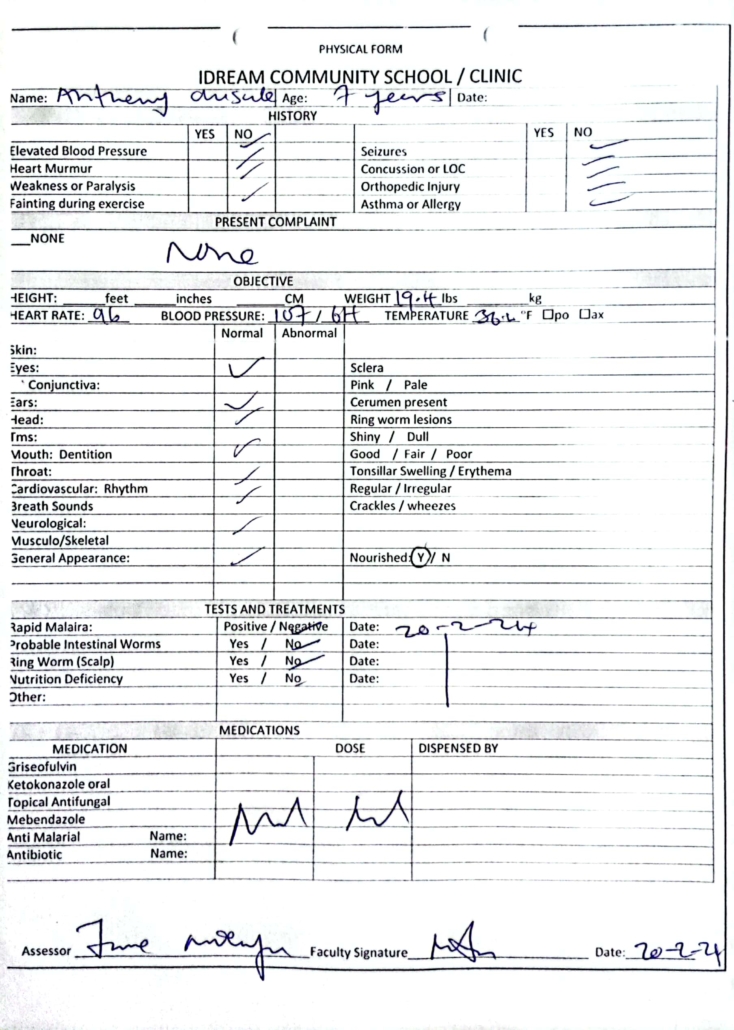 PHYSICAL FORM
IDREAM COMMUNITY SCHOOL / CLINIC
Name: Anthony Age: 7 years Date:
HISTORY
YES NO YES NO
Elevated Blood Pressure Seizures
Heart Murmur Concussion or LOC
Weakness or Paralysis Orthopedic Injury
Fainting during exercise Asthma or Allergy
PRESENT COMPLAINT
__NONE
None
OBJECTIVE
HEIGHT: ______feet ______inches ______CM WEIGHT 19.4 lbs ______kg
HEART RATE: 96 BLOOD PRESSURE: 107 / 64 TEMPERATURE 36.2 °F ☐po ☐ax
Normal Abnormal
Skin:
Eyes: ✓ Sclera
Conjunctiva: Pink / Pale
Ears: ✓ Cerumen present
Head: ✓ Ring worm lesions
Tms: Shiny / Dull
Mouth: Dentition ✓ Good / Fair / Poor
Throat: ✓ Tonsillar Swelling / Erythema
Cardiovascular: Rhythm ✓ Regular / Irregular
Breath Sounds Crackles / wheezes
Neurological: ✓
Musculo/Skeletal
General Appearance: ✓ Nourished: Y / N
TESTS AND TREATMENTS
Rapid Malaira: Positive / Negative Date: 20-2-24
Probable Intestinal Worms Yes / No Date:
Ring Worm (Scalp) Yes / No Date:
Nutrition Deficiency Yes / No Date:
Other:
MEDICATIONS
MEDICATION DOSE DISPENSED BY
Griseofulvin
Ketokonazole oral
Topical Antifungal
Mebendazole
Anti Malarial Name:
Antibiotic Name:
Assessor Faculty Signature Date: 20-2-24